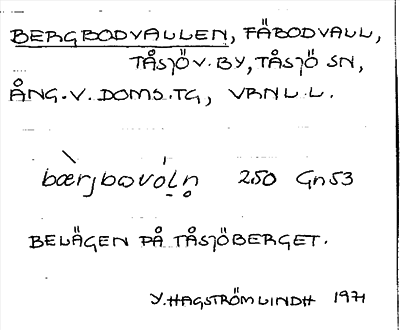 BERGBODVALLEN, FÄBODVALL,
TÅSJÖ V. BY, TÅSJÖ SN,
ÅNG. V. DOMS. TG, VRNL. L.
bæ̀rjbavól̥n̥ 250 Gn 53
BELÄGEN PÅ TÅSJÖBERGET.
Y. HAGSTRÖM LINDH 1971